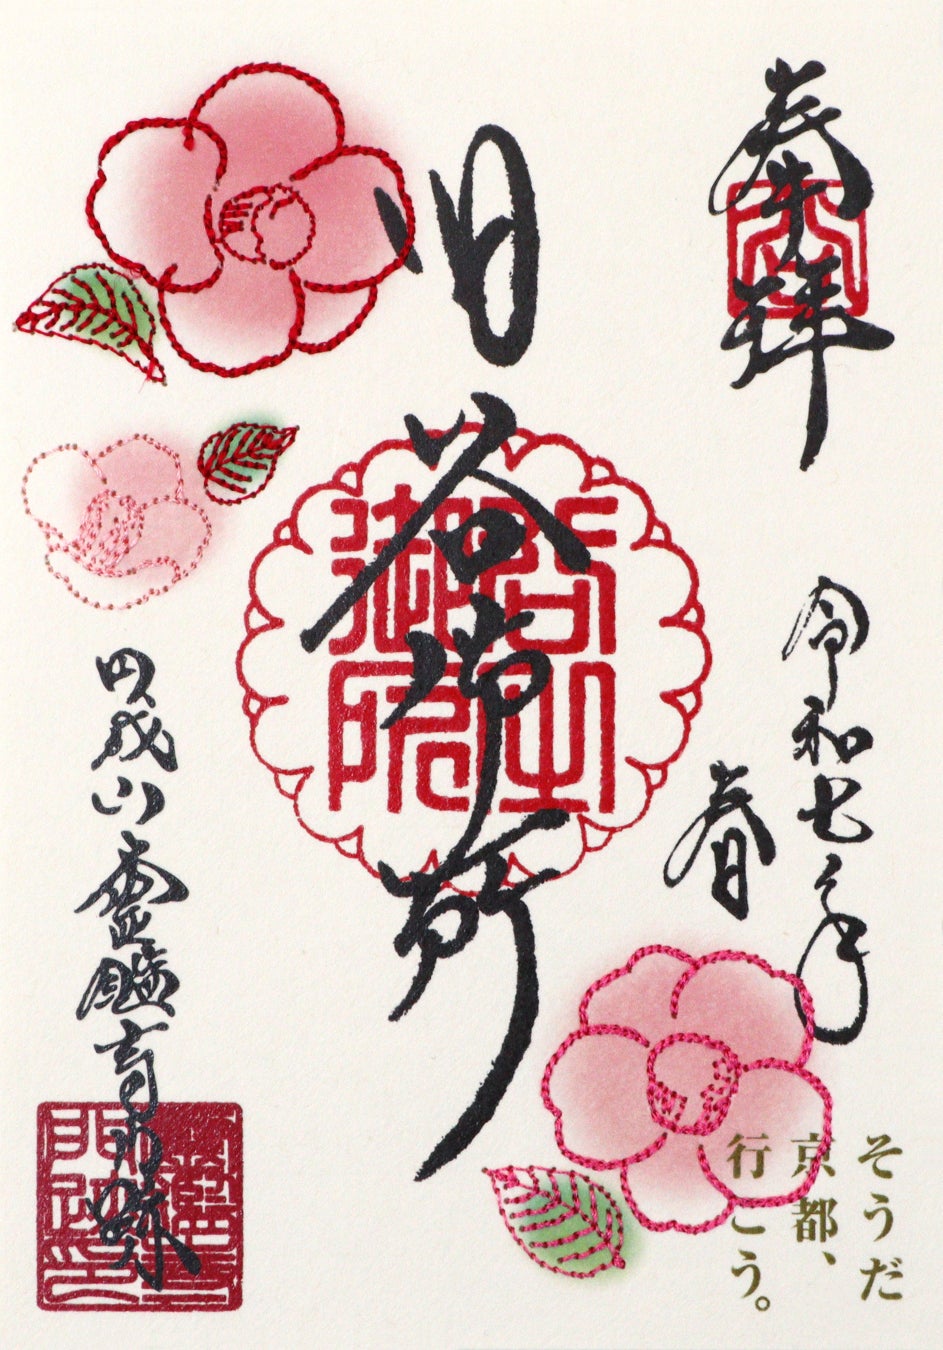 奉拝
令和七年
春
そうだ
京都、
行こう。
旧谷御所
円成山霊鑑寺門跡